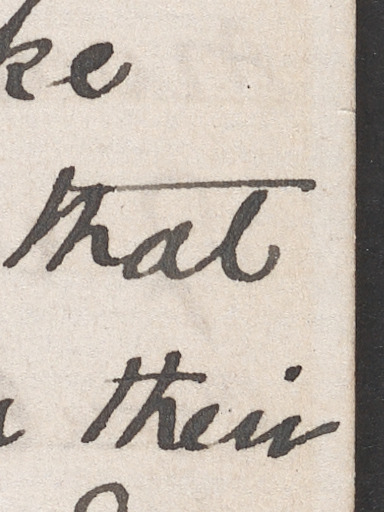 ke
that
their